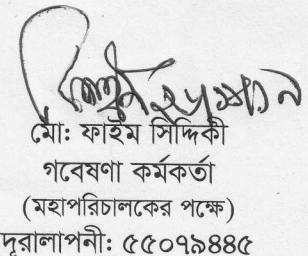 মো: ফাইম সিদ্দিকী
গবেষণা কর্মকর্তা
(মহাপরিচালকের পক্ষে)
দূরালাপনী: ৫৫০৭৯৪৪৫